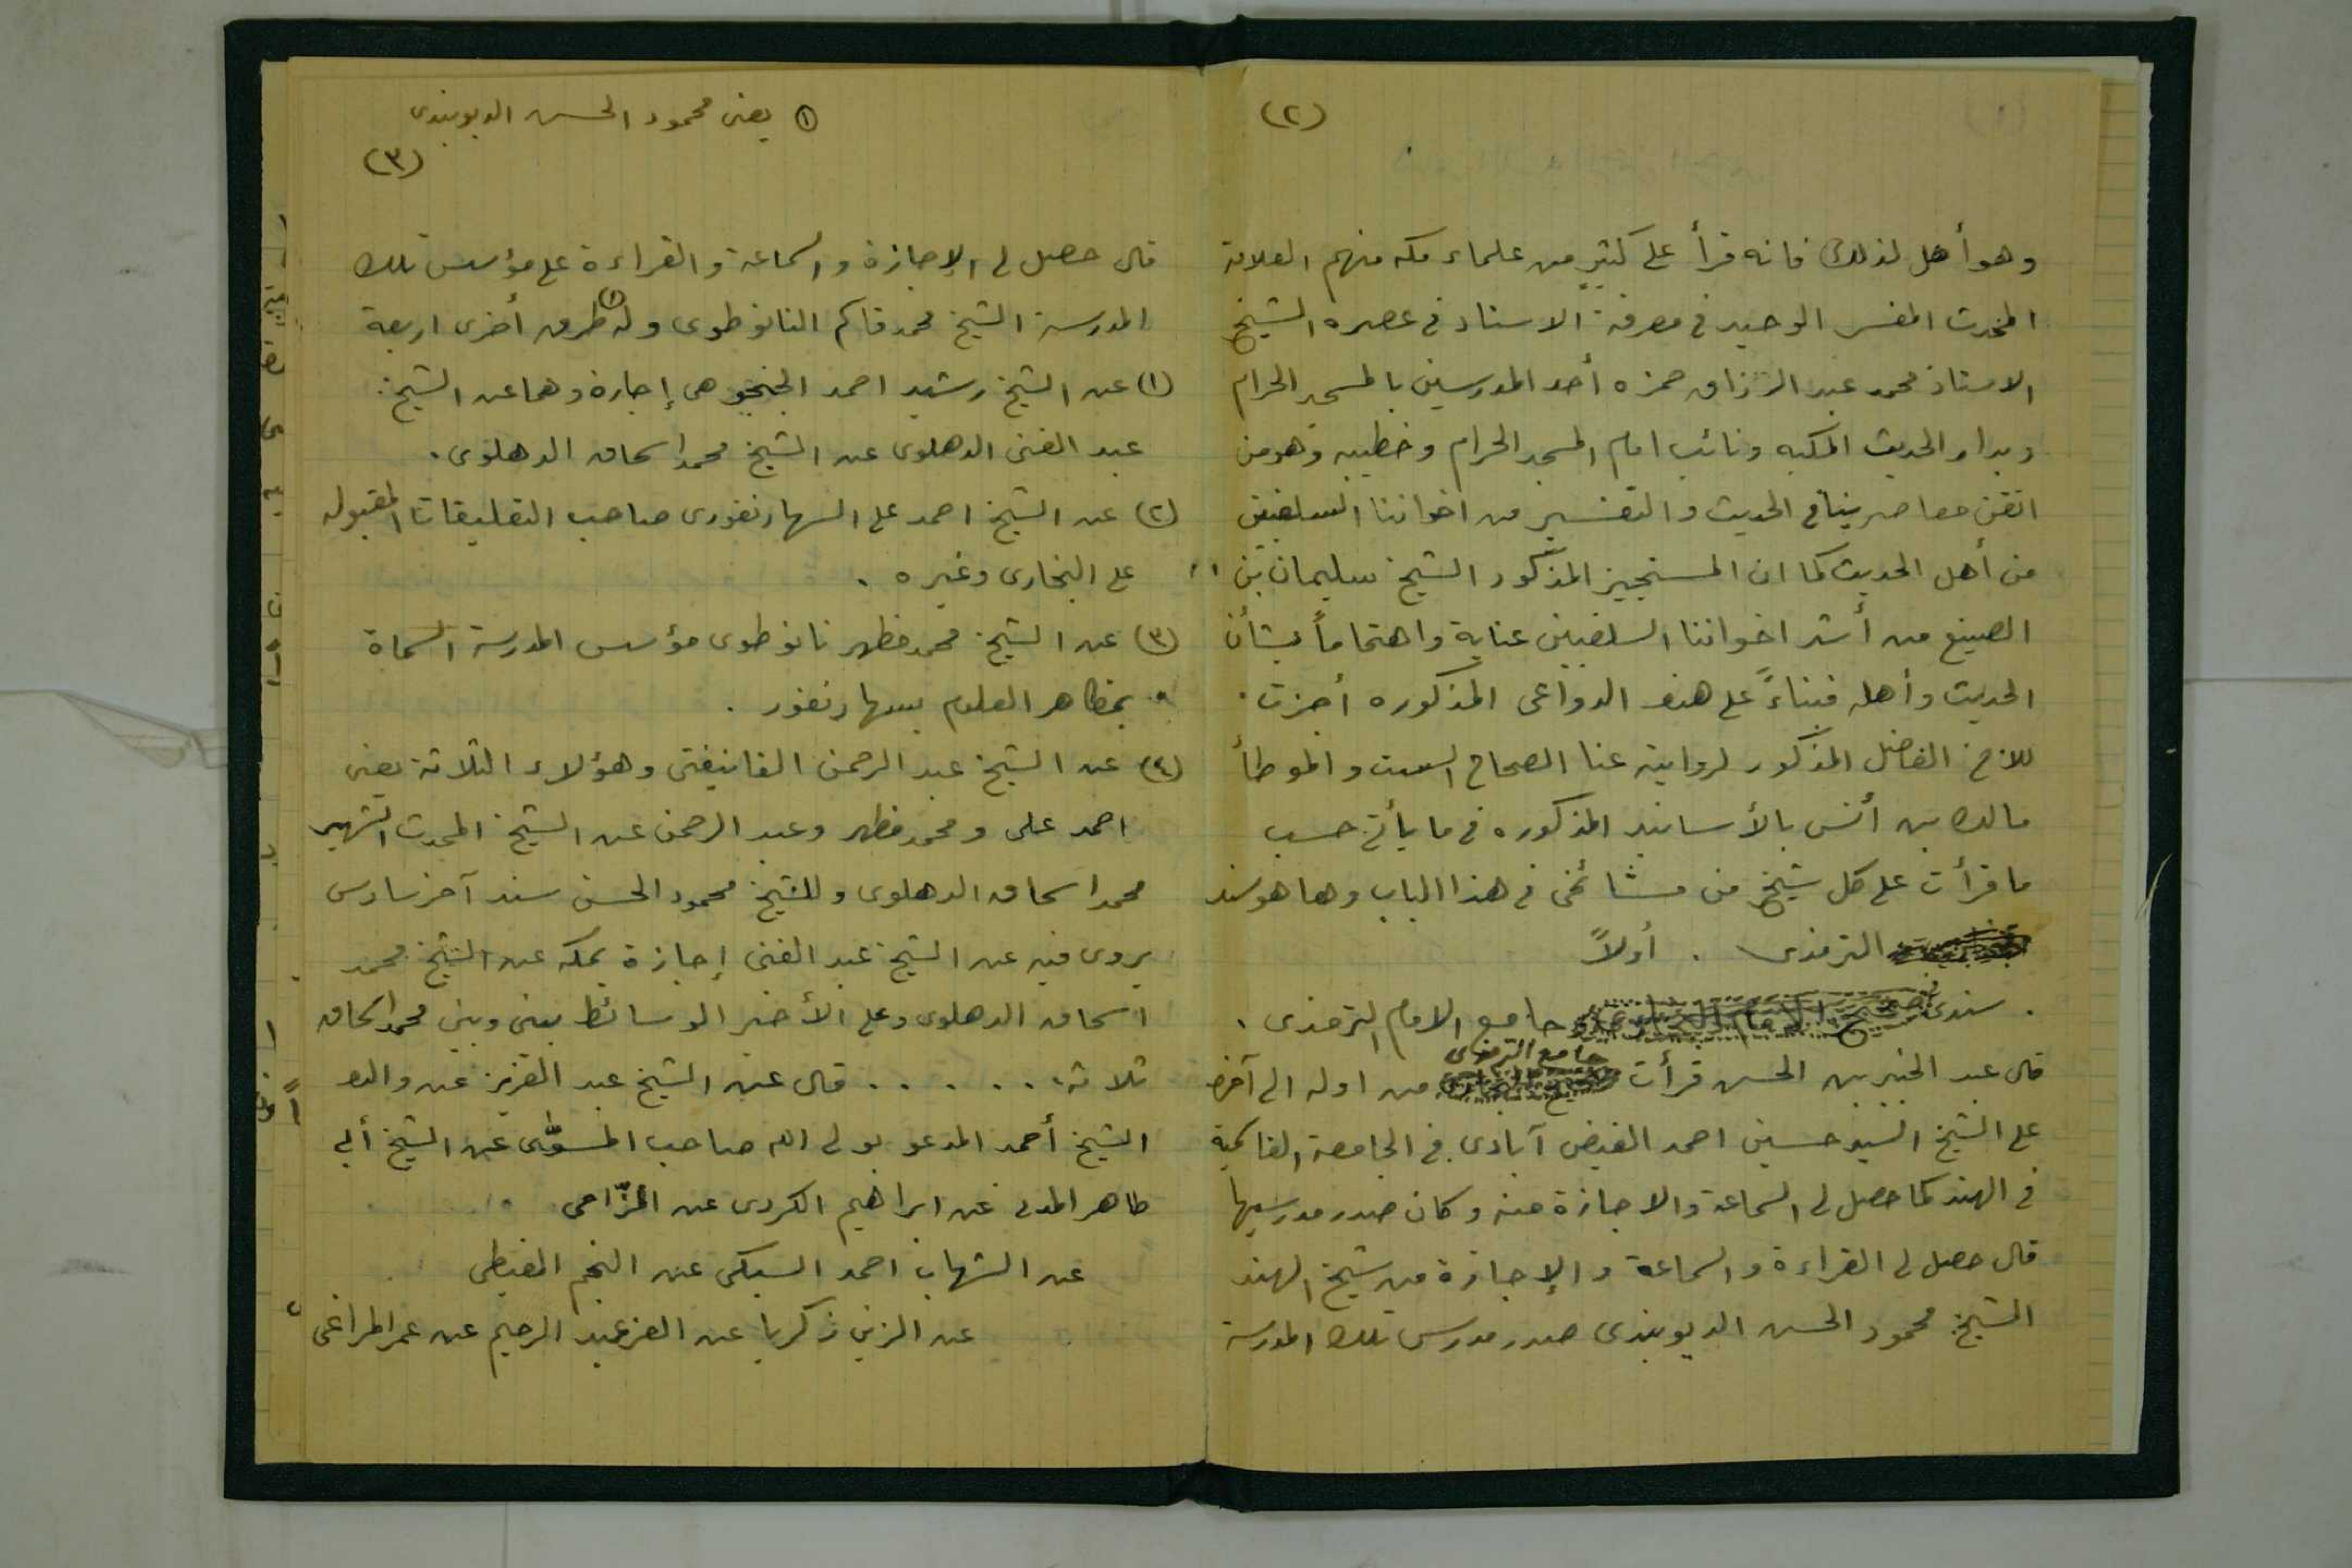 (٢)
وهو أهل لذلك فانه قرأ على كثير من علماء مكه منهم العلامة
المحدث المفسر الوحيد في معرفة الاسناد في عصره الشيخ
الاستاذ محمد عبد الرزاق حمزه أحد المدرسين بالمسجد الحرام
وبدار الحديث المكيه ونائب امام المسجد الحرام وخطيبه وهو من
اتقن معاصرينا في الحديث والتفسير من اخواننا السلفيين
من أهل الحديث كما ان المستجيز المذكور الشيخ سليمان بن
الصنيع من أشد اخواننا السلفيين عناية واهتماماً بشأن
الحديث وأهله فبناءً على هذه الدواعى المذكوره أجزت
للاخ الفاضل المذكور لرواية عنا الصحاح الست والموطأ
مالك بن أنس بالأسانيد المذكوره في ما يأتي حسب
ما قرأت على كل شيخ من مشائخى في هذا الباب وها هو سند
الترمذى . أولاً
. سندى جامع الامام الترمذى .
قال عبد الخير بن الحسن قرأت جامع الترمذى من اوله الى آخره
على الشيخ السيد حسين احمد الفيض آبادى في الجامعة القاسمية
في الهند كما حصل لى السماعة والاجازة منه وكان صدر مدرسيها
قال حصل لى القراءة والسماعة والإجازة من شيخ الهند
الشيخ محمود الحسن الديوبندى صدر مدرس تلك المدرسة
(١) يعنى محمود الحسن الديوبندى
(٣)
قال حصل لى الإجازة والسماعة والقراءة على مؤسس تلك
المدرسة الشيخ محمد قاسم النانوطوى وله (١) طرق أخرى اربعة
(١) عن الشيخ رشيد احمد الجنجوهى إجازة وهما عن الشيخ
عبد الغنى الدهلوى عن الشيخ محمد اسحاق الدهلوى .
(٢) عن الشيخ احمد على السهارنفورى صاحب التعليقات المقبوله
على البخارى وغيره .
(٣) عن الشيخ محمد مظهر نانوطوى مؤسس المدرسة المسماة
بمظاهر العلوم بسهارنفور .
(٤) عن الشيخ عبد الرحمن الفانيفتى وهؤلاء الثلاثة يعنى
احمد على ومحمد مظهر وعبد الرحمن عن الشيخ المحدث الشهير
محمد اسحاق الدهلوى وللشيخ محمود الحسن سند آخر سادس
يروى فيه عن الشيخ عبد الغنى إجازة بمكه عن الشيخ محمد
اسحاق الدهلوى وعلى الأخير الوسائط بينى وبين محمد اسحاق
ثلاثة . . . . . . قال عن الشيخ عبد العزيز عن والده
الشيخ أحمد المدعو بولى الله صاحب المسوّى عن الشيخ أبى
طاهر المدنى عن ابراهيم الكردى عن المزّاحى
عن الشهاب احمد السبكى عن النجم الغيطى
عن الزين زكريا عن العز عبد الرحيم عن عمر المراغى